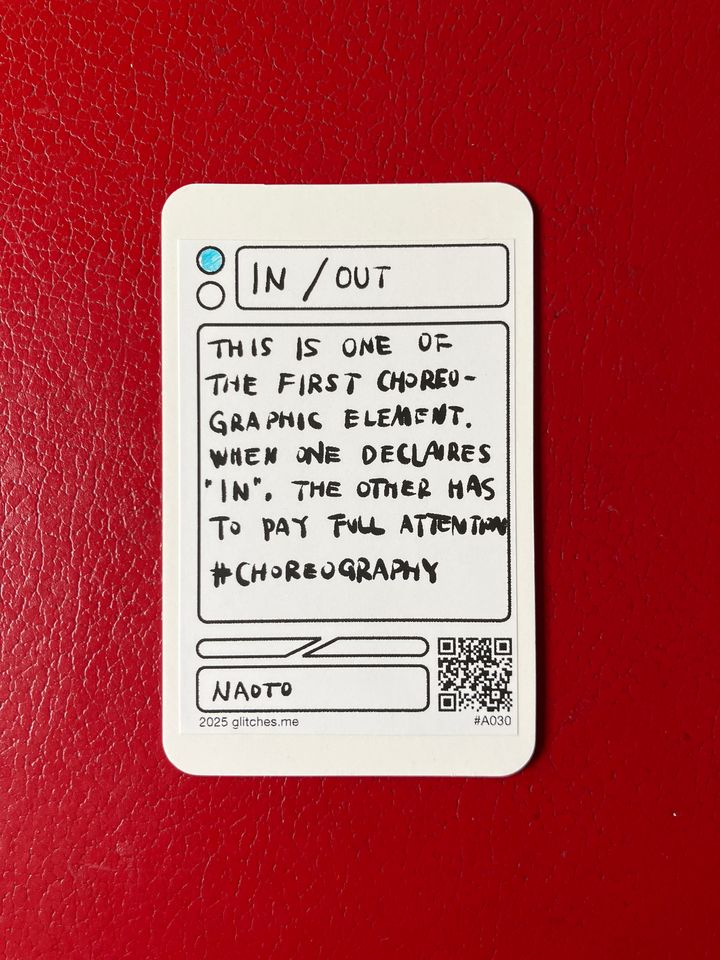 IN / OUT
THIS IS ONE OF
THE FIRST CHOREO-
GRAPHIC ELEMENT.
WHEN ONE DECLAIRES
"IN". THE OTHER HAS
TO PAY FULL ATTENTION
#CHOREOGRAPHY
NAOTO
2025 glitches.me
#A030